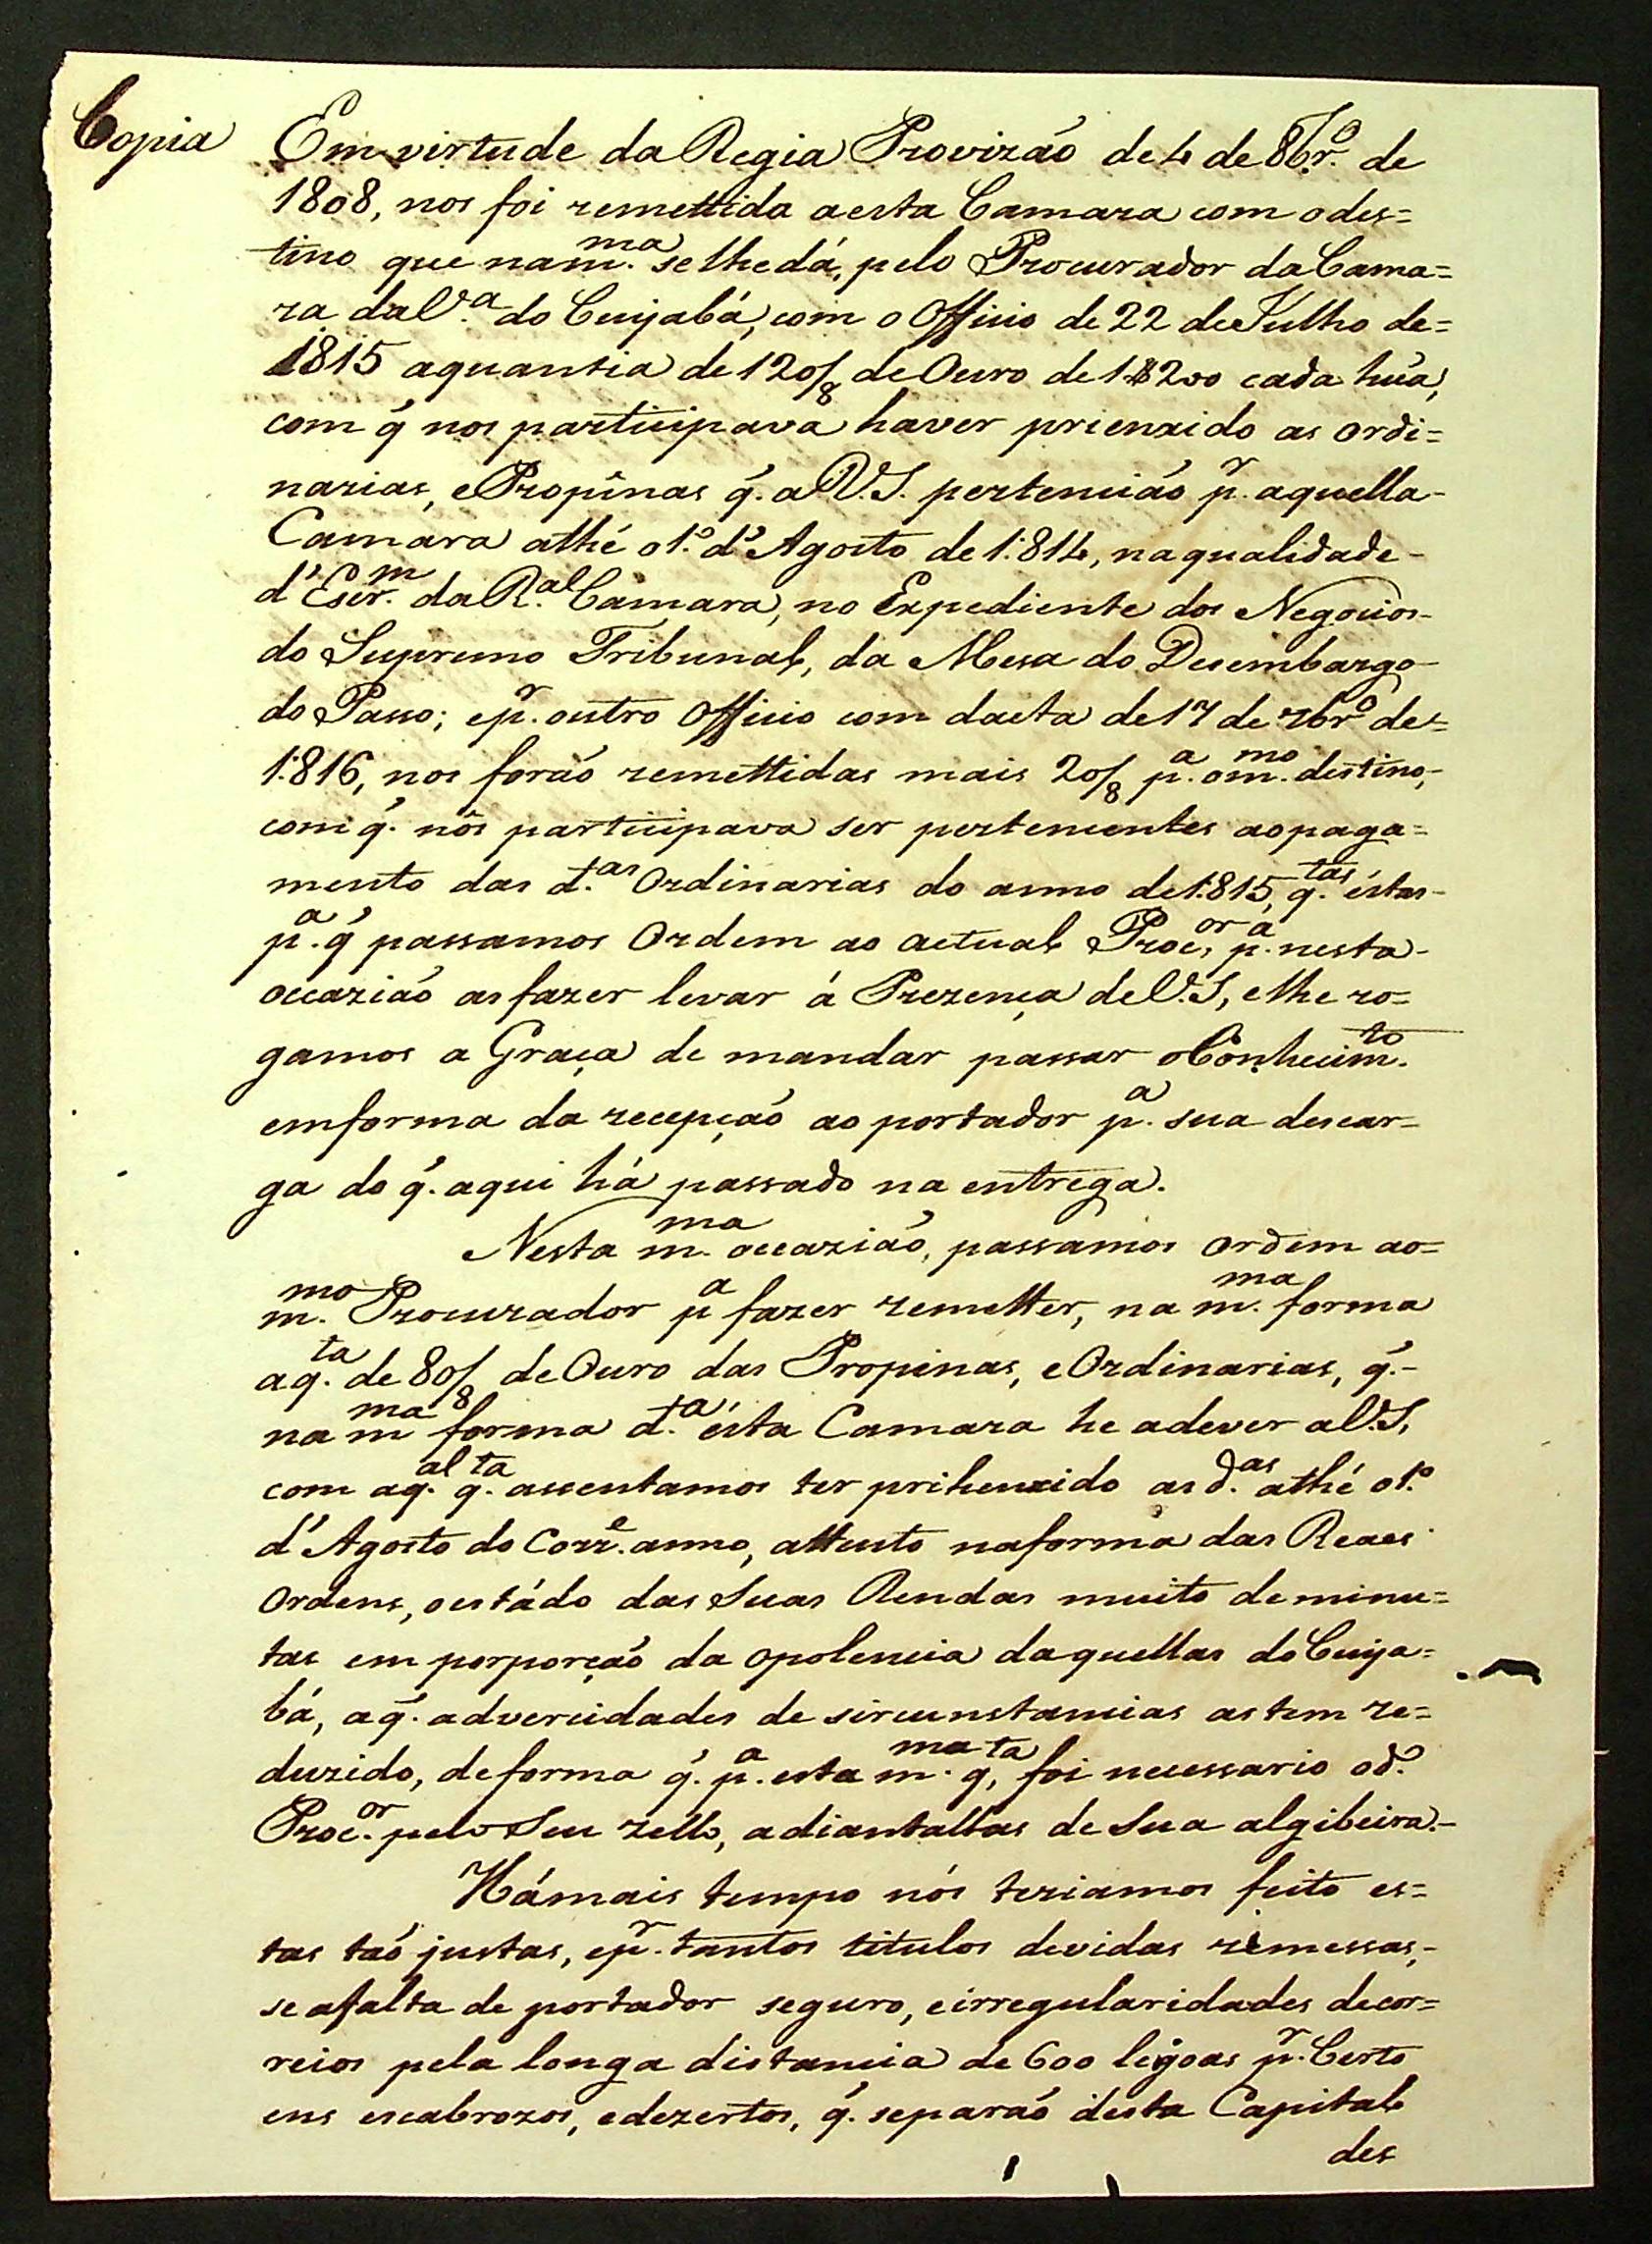 Copia
Em virtude da Regia Provizáo de 4 de 8br.º de
1808, nos foi remettida a esta Camara com o des=
tino que na m.ma se lhe dá, pelo Procurador da Cama=
ra da V.ª do Cuyabá, com o Officio de 22 de Julho de=
1815 a quantia de 120/8 de Ouro de 1$200 cada húa,
com q́ nos participava haver prienxido as ordi=
narias, e Propinas q́. a V.S. pertenciáo p.r aquella-
Camara athé o 1.º d'Agosto de 1:814, na qualidade-
d'Escr.m da R.al Camara, no Expediente dos Negocios-
do Supremo Tribunal, da Mesa do Desembargo-
do Passo; e p.r outro Officio com dacta de 17 de 7br.º de=
1:816, nos foráo remettidas mais 20/8 p.a o m.mo destino,-
com q́. nos participava ser pertencentes ao paga=
mento das d.as Ordinarias do anno de 1:815, q.tas éstas-
p.a q́ passamos Ordem ao actual Proc.or p.a nesta-
occaziáo as fazer levar á Prezença de V.S, e lhe ro=
gamos a Graça de mandar passar o Conhecim.to
em forma da recepçáo ao portador p.a sua descar=
ga do q́. aqui há passado na entrega.
Nesta m.ma occaziáo, passamos ordem ao=
m.mo Procurador p.a fazer remetter, na m.ma forma
a q.ta de 80/8 de Ouro das Propinas, e Ordinarias, q́.-
na m.ma forma d.ta ésta Camara he a dever a V.S,
com a q.al q.ta assentamos ter prihenxido as d.as athé o 1.º
d'Agosto do Corr.e anno, attento na forma das Reaes
Ordens, o estádo das Suas Rendas muito deminu=
tas em porporçáo da opolencia daquellas do Cuya=
bá, a q́. advercidades de sircunstancias as tem re=
duzido, de forma q́. p.a esta m.ma q.ta, foi necessario o d.º
Proc.or pelo Seu zello, adiantallas de Sua algibeira.-
Há mais tempo nós teriamos feito es=
tas táo justas, e p.r tantos titulos devidas remessas,-
se a falta de portador seguro, e irregularidades de cor=
reios pela longa distancia de 600 legoas p.r Certo
ens escabrozos, e dezertos, q́. separáo desta Capital
des